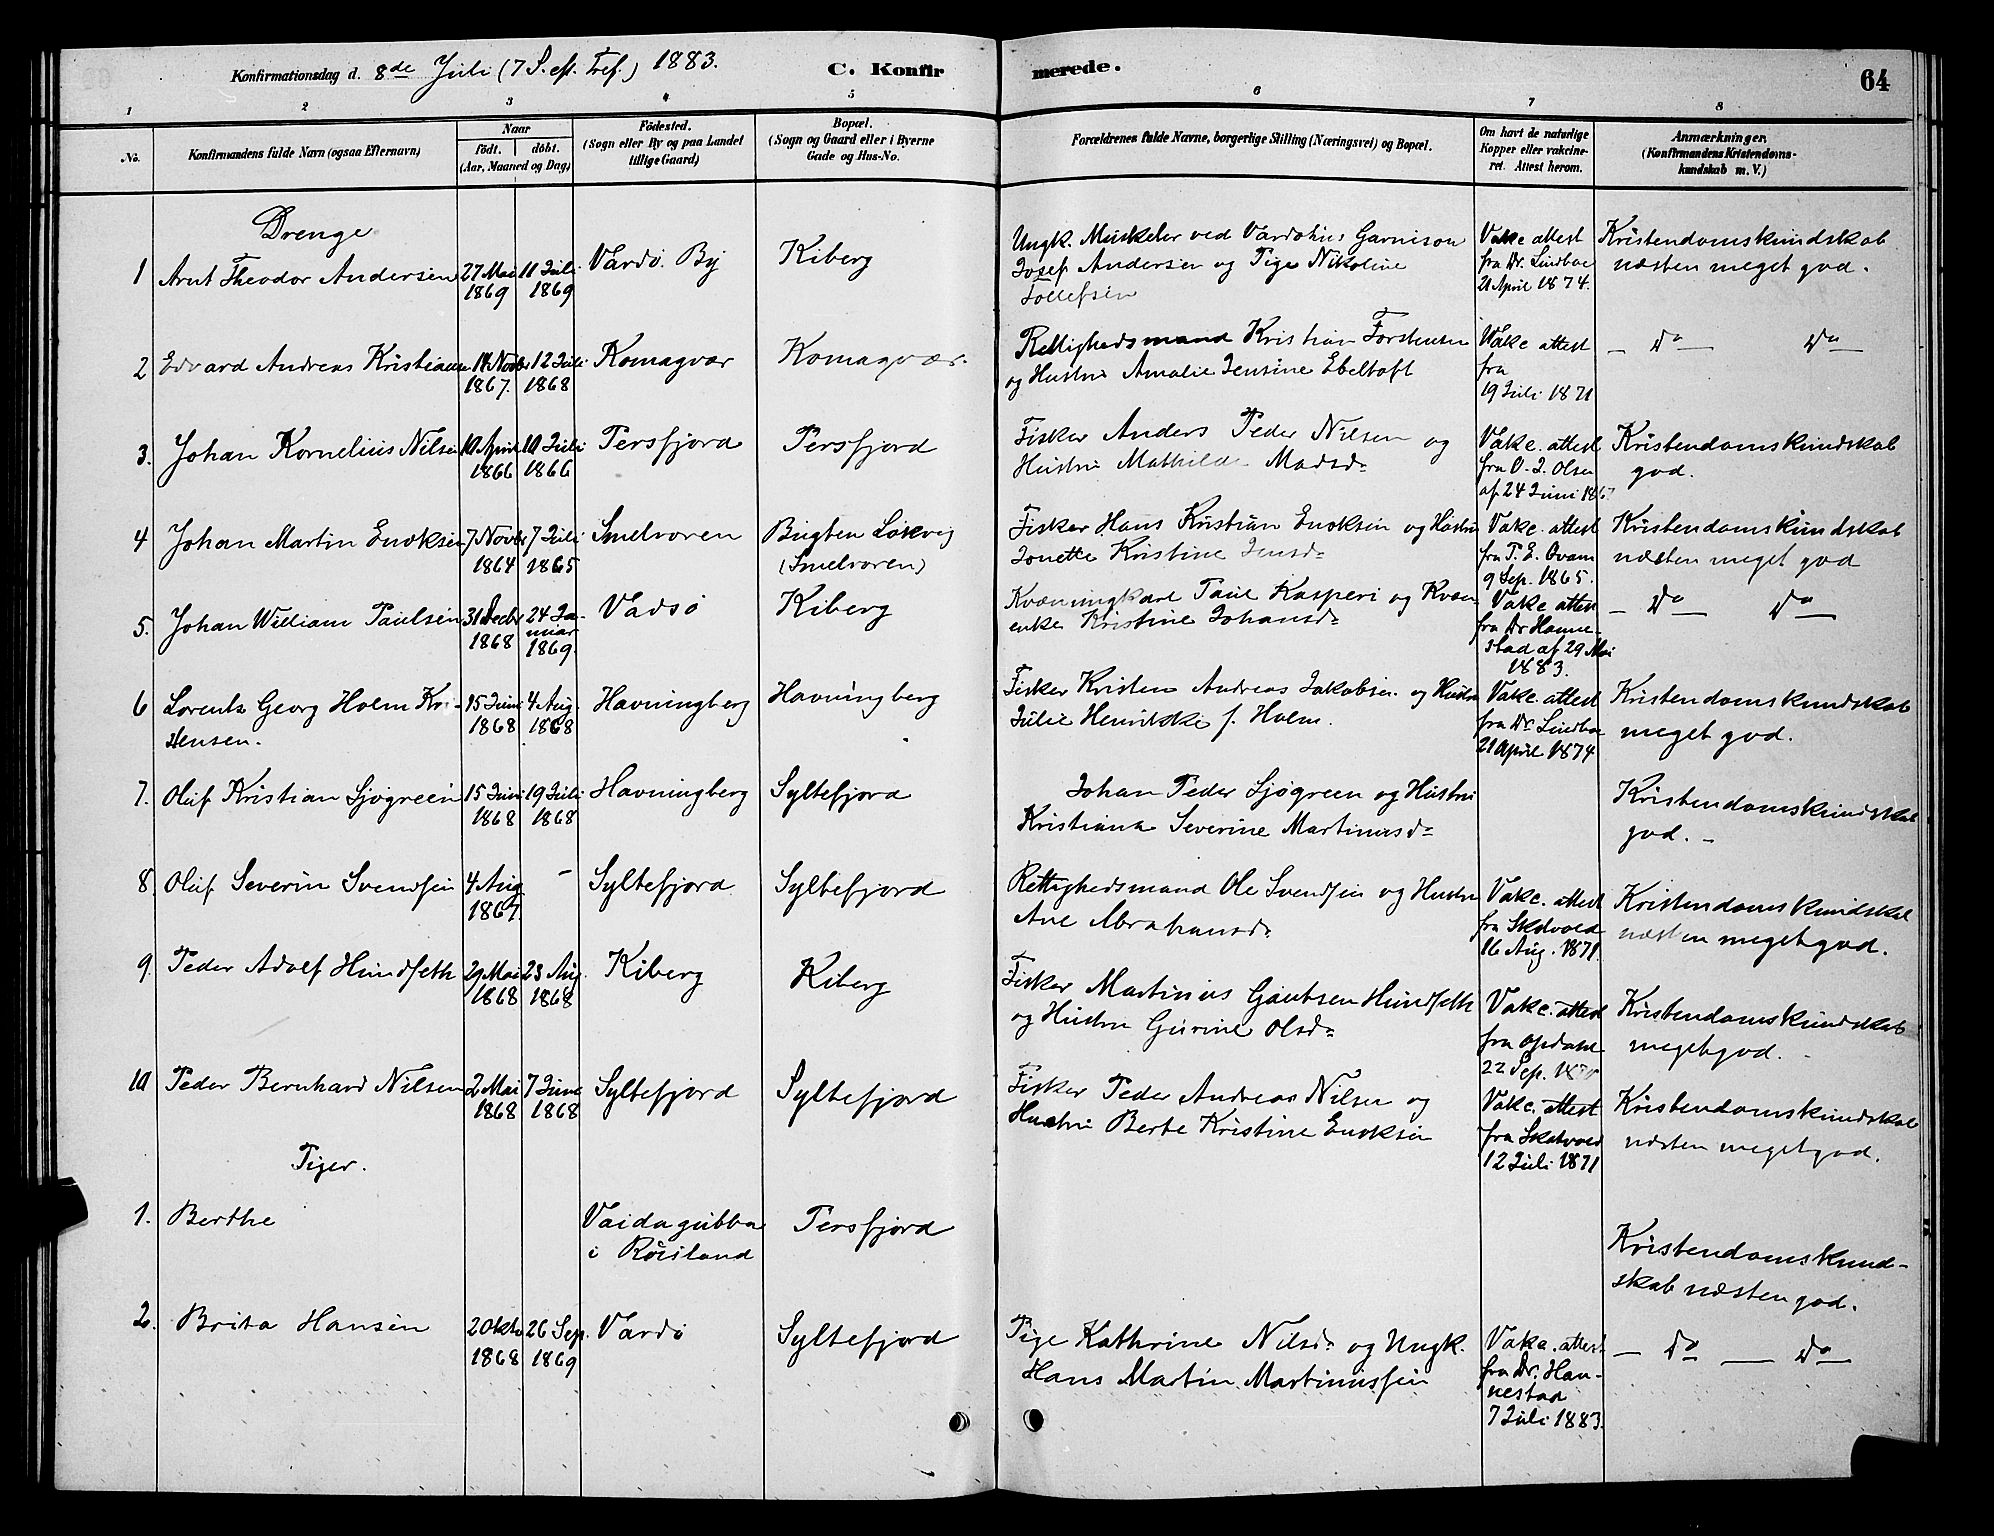 Konfirmationsdag d. 8de Juli (7 S. eft. Tref.) 1883.
C. Konfirmerede.
64
1 2 3 4 5 6 7 8
No.
Konfirmandens fulde Navn (ogsaa Efternavn)
Naar
født. døbt.
(Aar, Maaned og Dag)
Fødested.
(Sogn eller By og paa Landet
tillige Gaard)
Bopæl.
(Sogn og Gaard eller i Byerne
Gade og Hus-No.
Forældrenes fulde Navne, borgerlige Stilling (Næringsvei) og Bopæl.
Om havt de naturlige
Kopper eller vakcineret. Attest herom.
Anmærkninger
(Konfirmandens Kristendomskundskab m. V.)
Drenge
1 Arnt Theodor Andersen
27 Mai
1869
11 Juli
1869
Vardø By
Kiberg
Ungk. Muskeler ved Vardøhus Garnison
Josef Andersen og Pige Nikoline
Tollefsen
Vakc. attest
fra Dr. Lindboe
21 April 1874.
Kristendomskundskab
næsten meget god.
2 Edvard Andreas Kristiansen
14 Novbr
1867.
12 Juli
1868
Komagvær
Komagvær.
Rettighedsmand Kristian Torstensen
og Hustru Amalie Jensine Ebeltoft
Vakc attest
fra
19 Juli 1871
— Do — Do —
3. Johan Kornelius Nilsen
10 April
1866
10 Juli
1866
Persfjord
Persfjord
Fisker Anders Peder Nilsen og
Hustru Mathilde Madsdr
Vakc. attest
fra O. J. Olsen
af 24 Juni 186
Kristendomskundskab
god.
4 Johan Martin Enoksen
7 Novbr
1864
7 Juli
1865
Smelroren
Bugten Løkvig
(Smelroren)
Fisker Hans Kristian Enoksen og Hustru
Jonette Kristine Jensdr
Vakc. attest
fra P. E. Ovam
9 Sep. 1865.
Kristendomskundskab
næsten meget god
5. Johan William Paulsen
31 Decbr
1868
24 Januar
1869.
Vadsø
Kiberg
Kvænungkarl Paul Kasperi og Kvænenke Kristine Johansdr
Vakc. attest
fra Dr Hannestad af 29 Mai
1883.
— Do — Do —
6 Lorents Georg Holm Kristensen.
15 Juni
1868
4 Aug.
1868
Havningberg
Havningberg
Fisker Kristen Andreas Jakobsen og Hustru
Julie Henrikke f. Holm.
Vakc. attest
fra Dr. Lindboe
21 April 1874
Kristendomskundskab
meget god.
7. Oluf Kristian Sjøgreen
15 Juni
1868
19 Juli
1868
Havningberg
Syltefjord
Johan Peder Sjøgreen og Hustru
Kristiana Severine Martinusdr
Kristendomskundskab
god. -
8. Oluf Severin Svendsen
4 Aug
1867.
-
Syltefjord
Syltefjord
Rettighedsmand Ole Svendsen og Hustru
Ane Abrahamsdr
Vakc. attest
fra Skotvold
16 Aug. 1871.
Kristendomskundskab
næsten meget god.
9. Peder Adolf Hundseth
29 Mai
1868
23 Aug.
1868
Kiberg
Kiberg
Fisker Martinius Gautsen Hundseth
og Hustru Gurine Olsdr
Vakc. attest
fra Opdahl
22 Sep.
Kristendomskundskab
meget god.
10 Peder Bernhard Nilsen
2 Mai
1868
7 Juni
1868
Syltefjord
Syltefjord
Fisker Peder Andreas Nilsen og
Hustru Berte Kristine Enoksen
Vakc. attest
fra Skotvold
12 Juli 1871
Kristendomskundskab
næsten meget god.
Piger.
1. Berthe
Vaidagubba
i Rusland
Persfjord
Kristendomskundskab næsten god.
2. Brita Hansen
2 Oktb
1868
26 Sep.
1869
Vardø
Syltefjord
Pige Kathrine Nilsdr og Ungk.
Hans Martin Martinussen
Vakc. attest
fra Dr. Hannestad
7 Juli 1883.
— Do — Do —